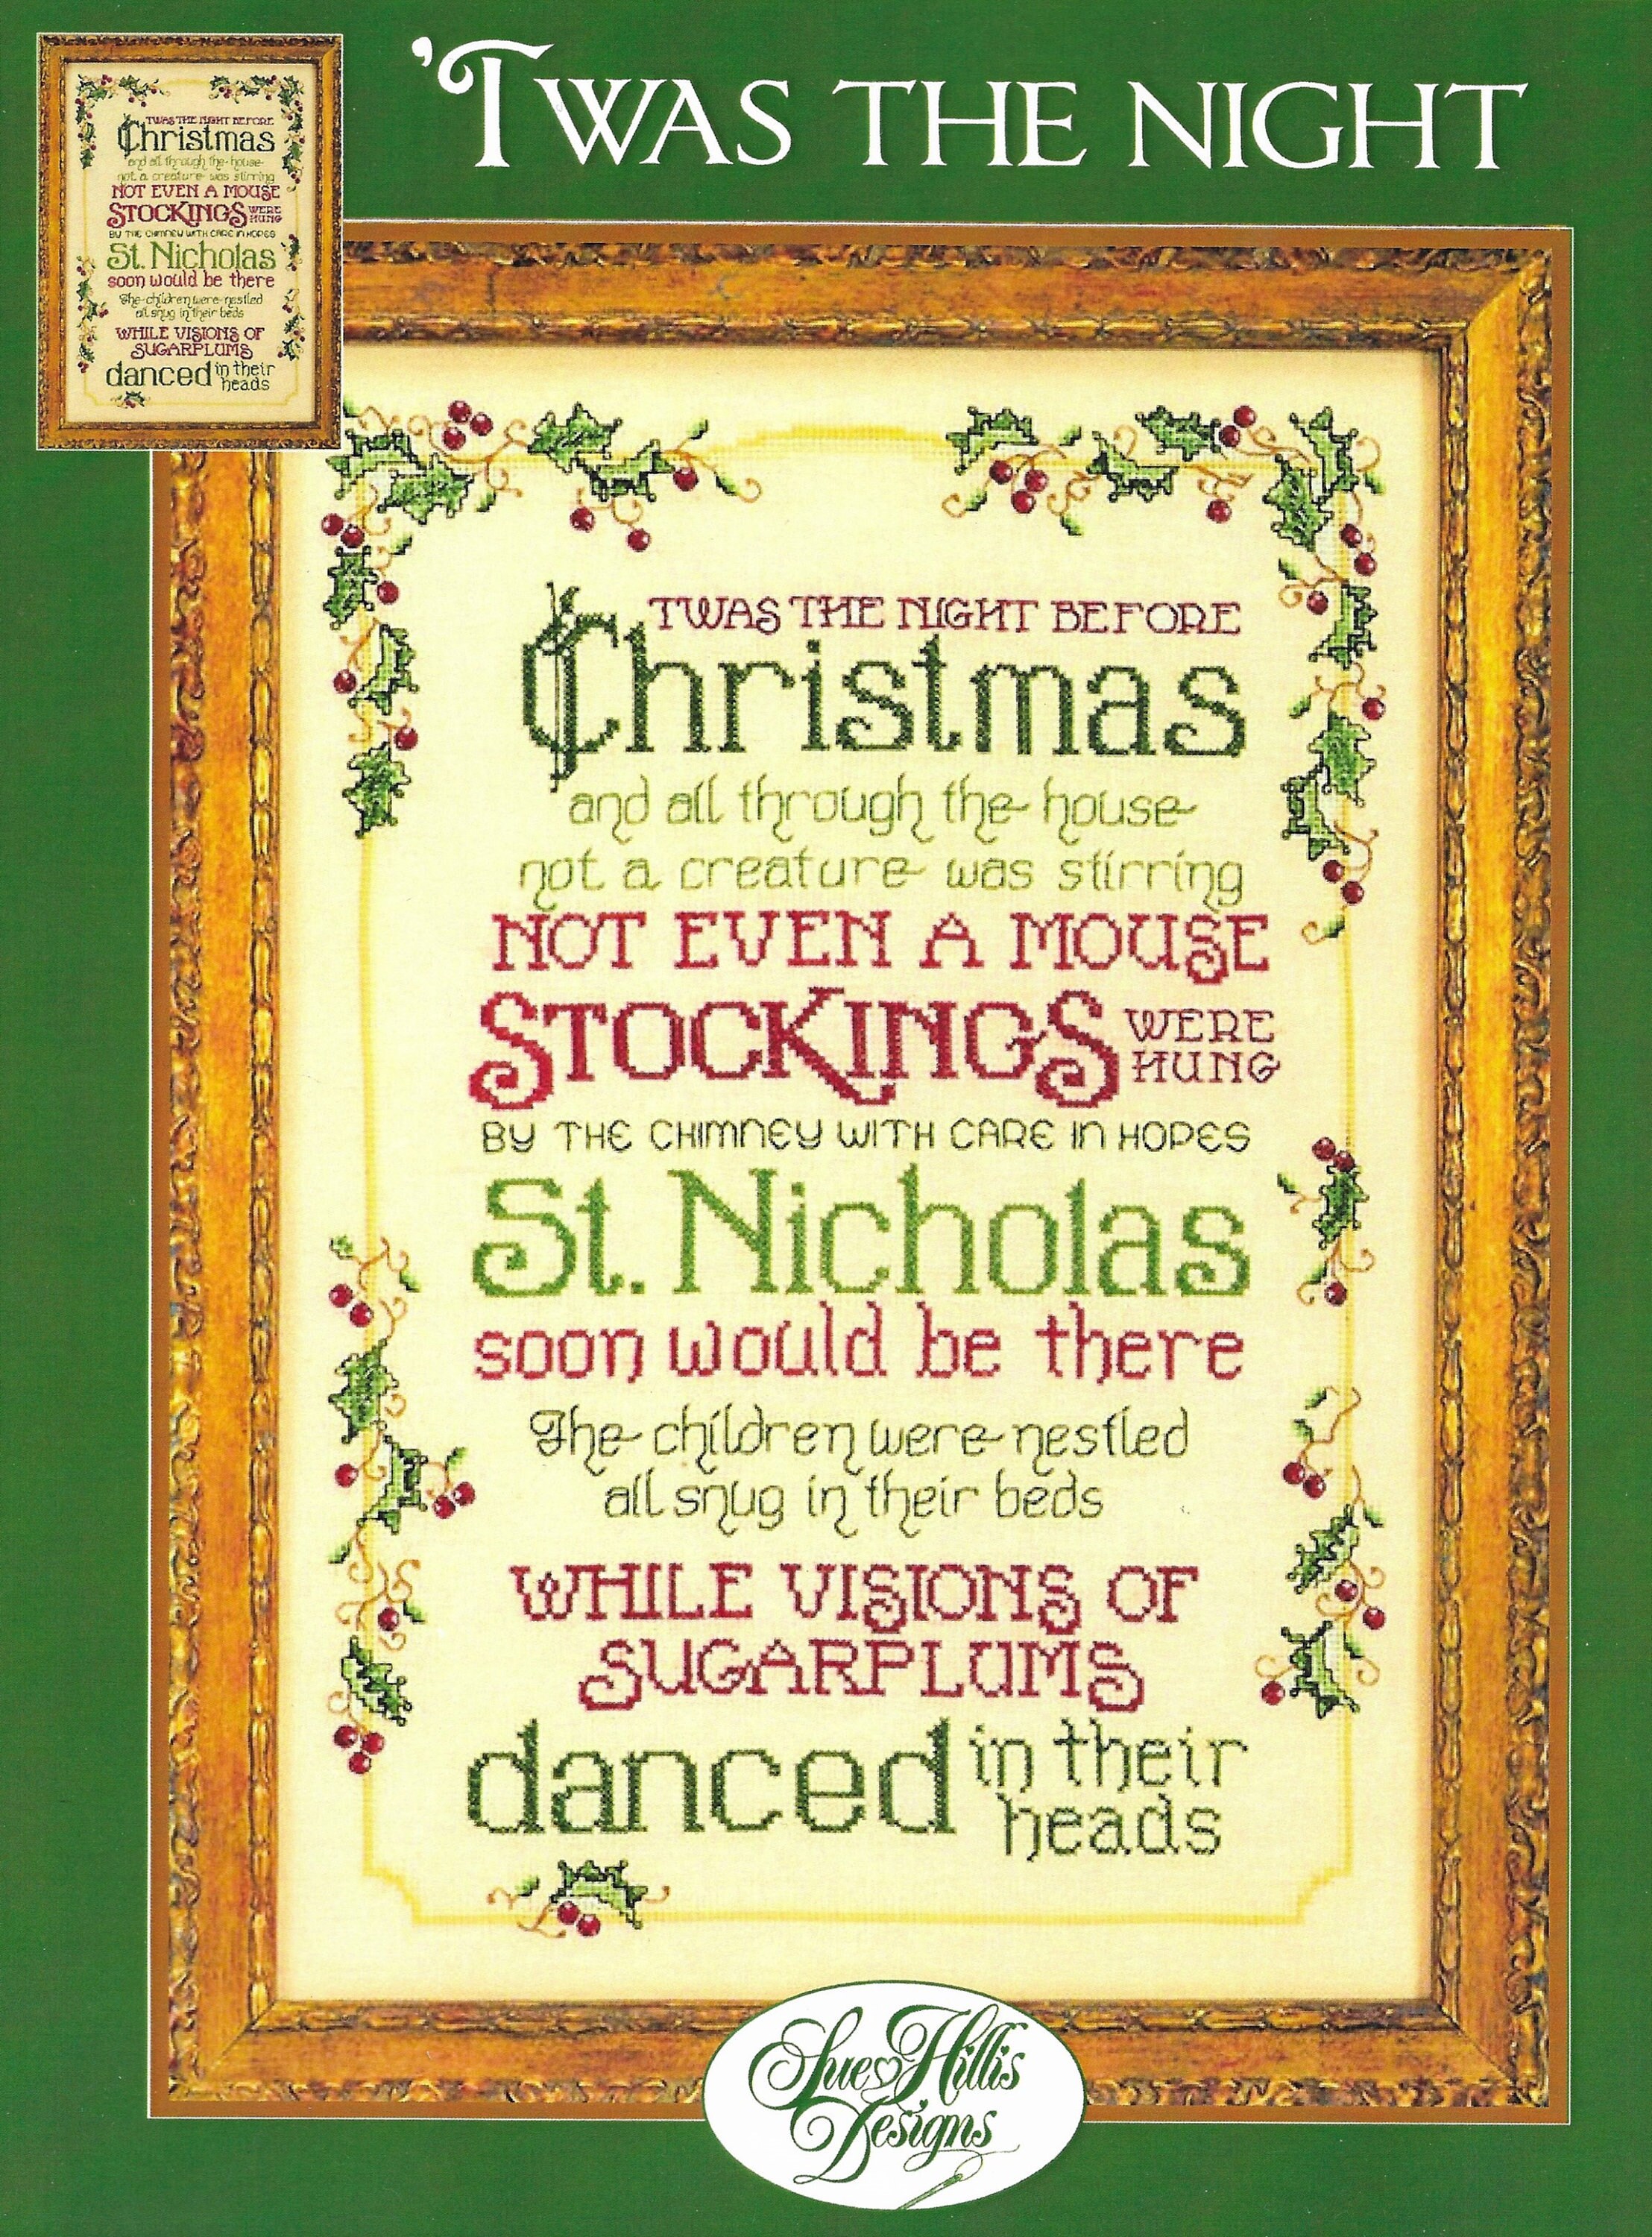 'TWAS THE NIGHT
TWAS THE NIGHT BEFORE
Christmas
and all through the house
not a creature was stirring
NOT EVEN A MOUSE
STOCKINGS WERE
HUNG
BY THE CHIMNEY WITH CARE IN HOPES
St. Nicholas
soon would be there
The children were nestled
all snug in their beds
WHILE VISIONS OF
SUGARPLUMS
danced in their
heads
TWAS THE NIGHT BEFORE
Christmas
and all through the house
not a creature was stirring
NOT EVEN A MOUSE
STOCKINGS WERE
HUNG
BY THE CHIMNEY WITH CARE IN HOPES
St. Nicholas
soon would be there
The children were nestled
all snug in their beds
WHILE VISIONS OF
SUGARPLUMS
danced in their
heads
Sue Hillis
Designs